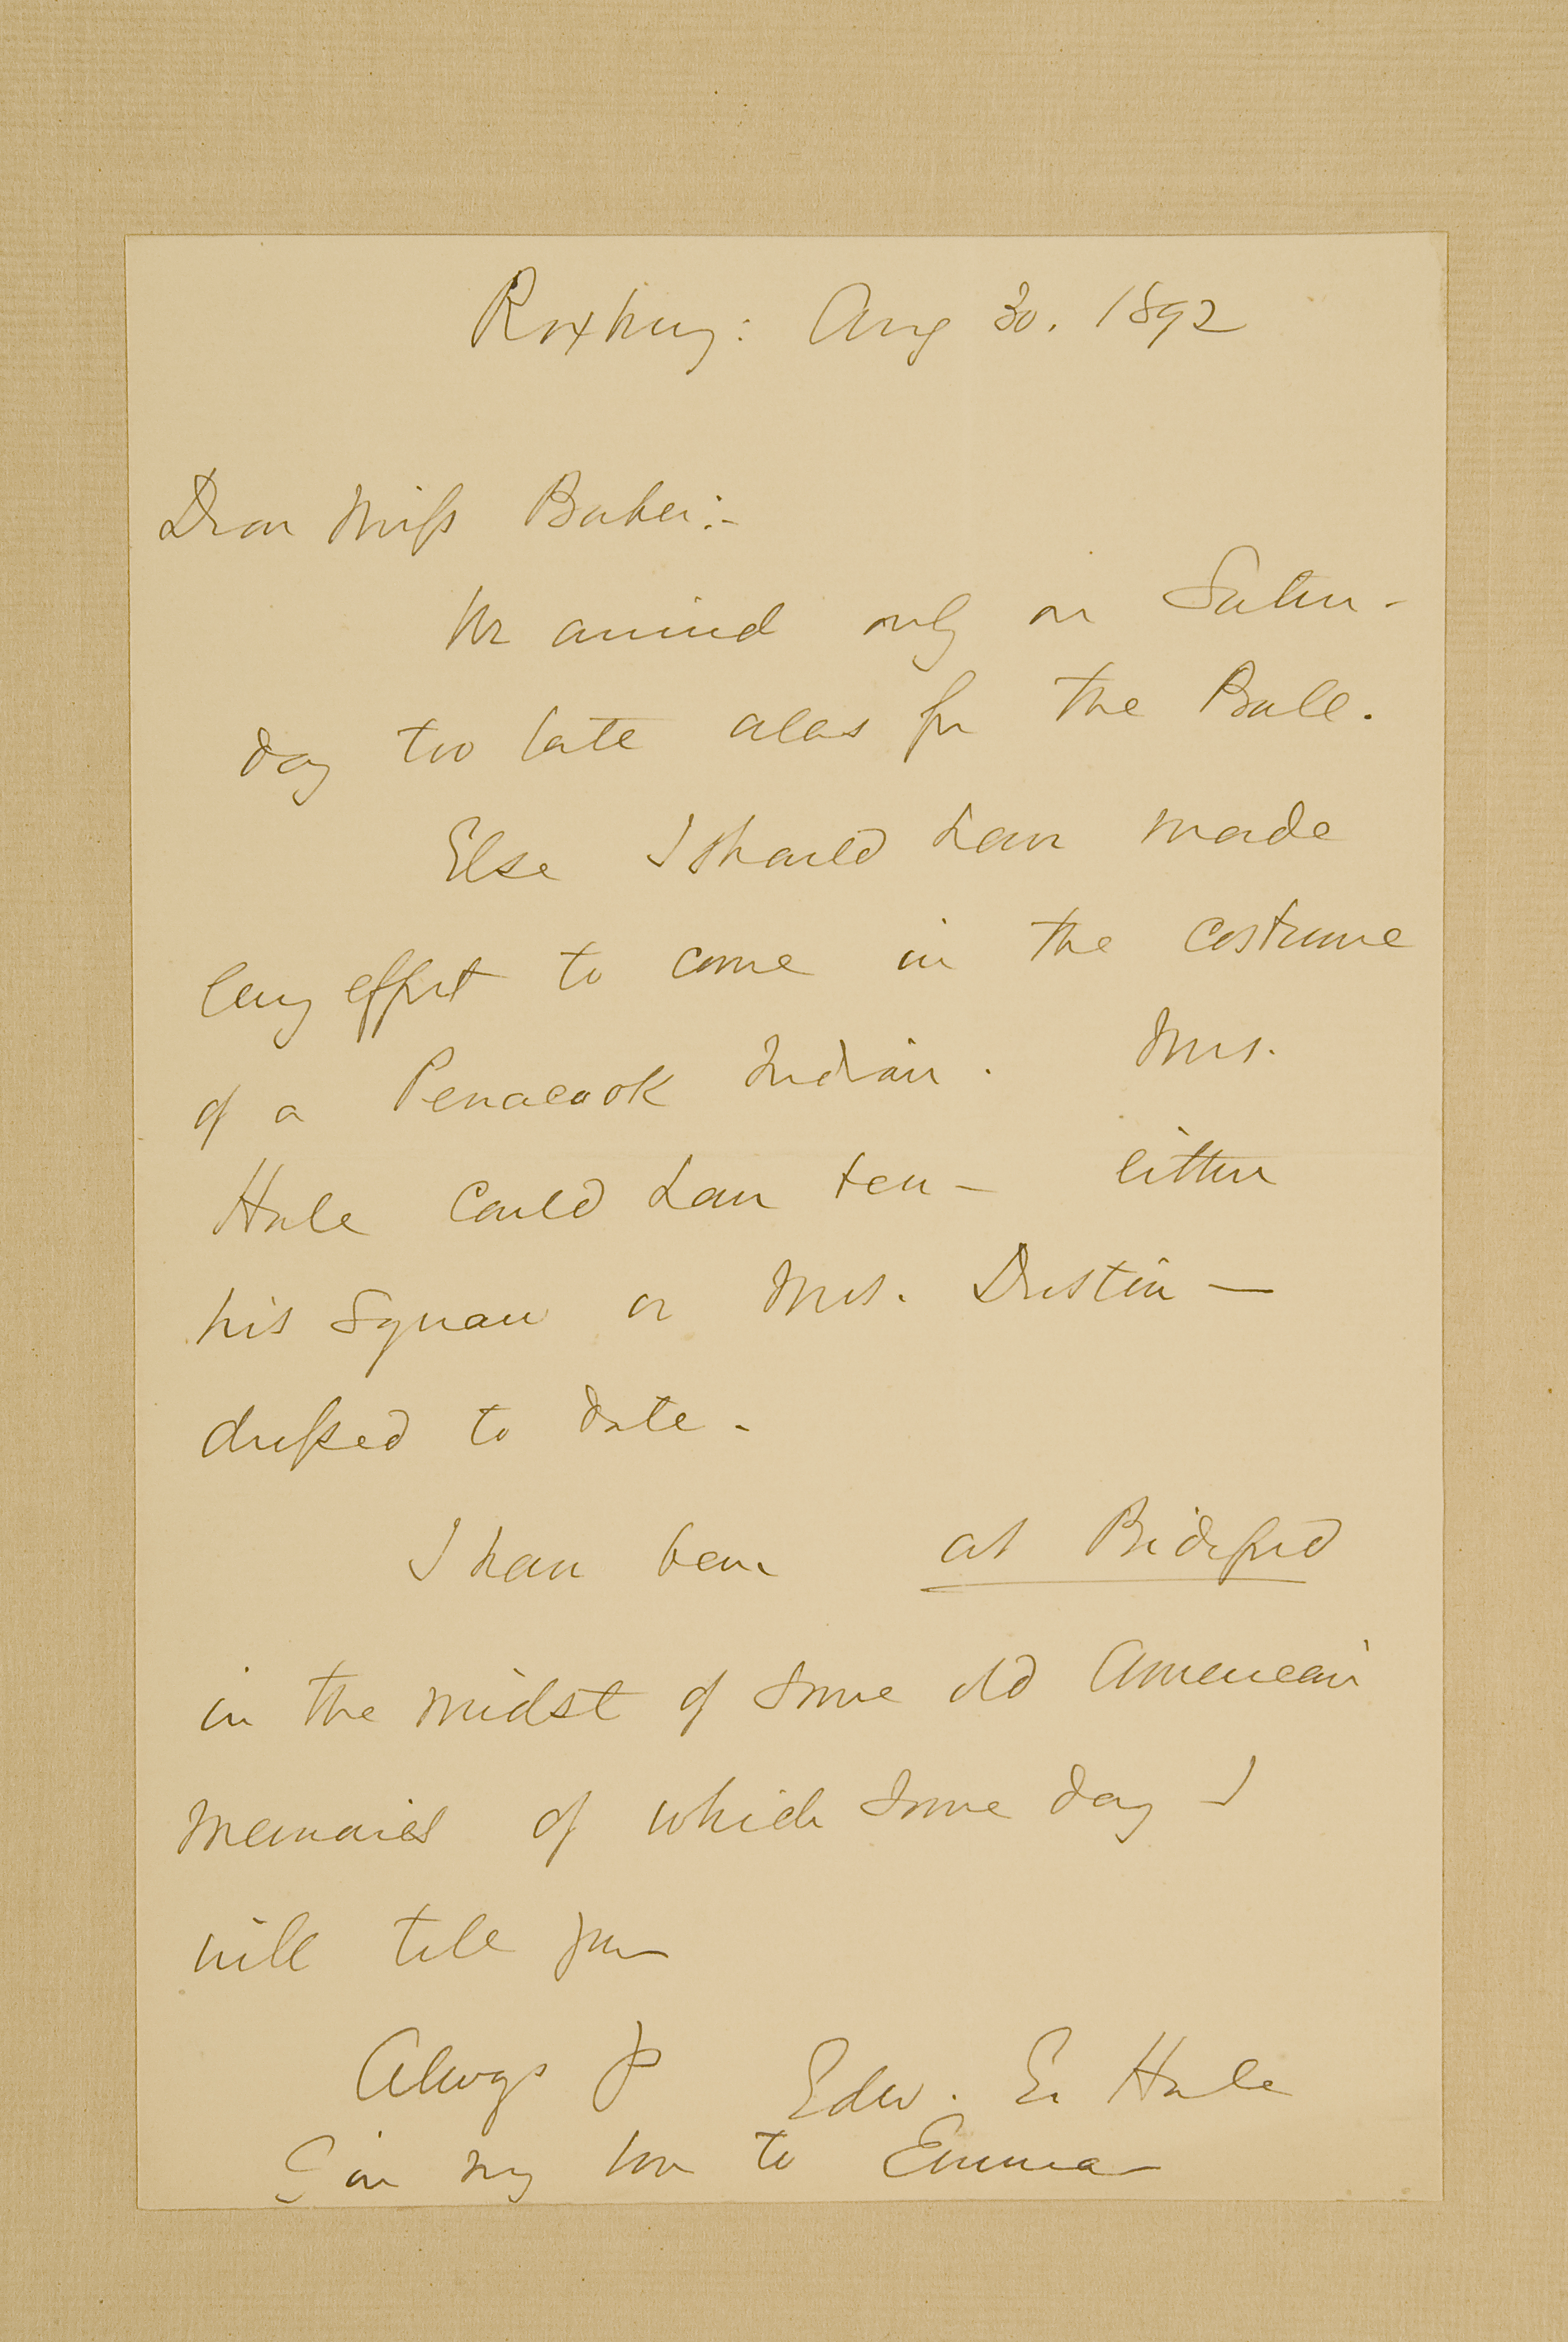 Roxbury: Aug 30. 1892
Dear Miss Baker:-
We arrived only on Satur-
day too late alas for the Ball.
Else I should have made
every effort to come in the costume
of a Penacook Indian. Mrs.
Hale could have been - either
his Squaw or Mrs. Dustin —
dressed to date -
I have been at Bideford
in the midst of some old American
memories of which some day I
will tell you
Always yrs Edw. E. Hale
Give my love to Emma